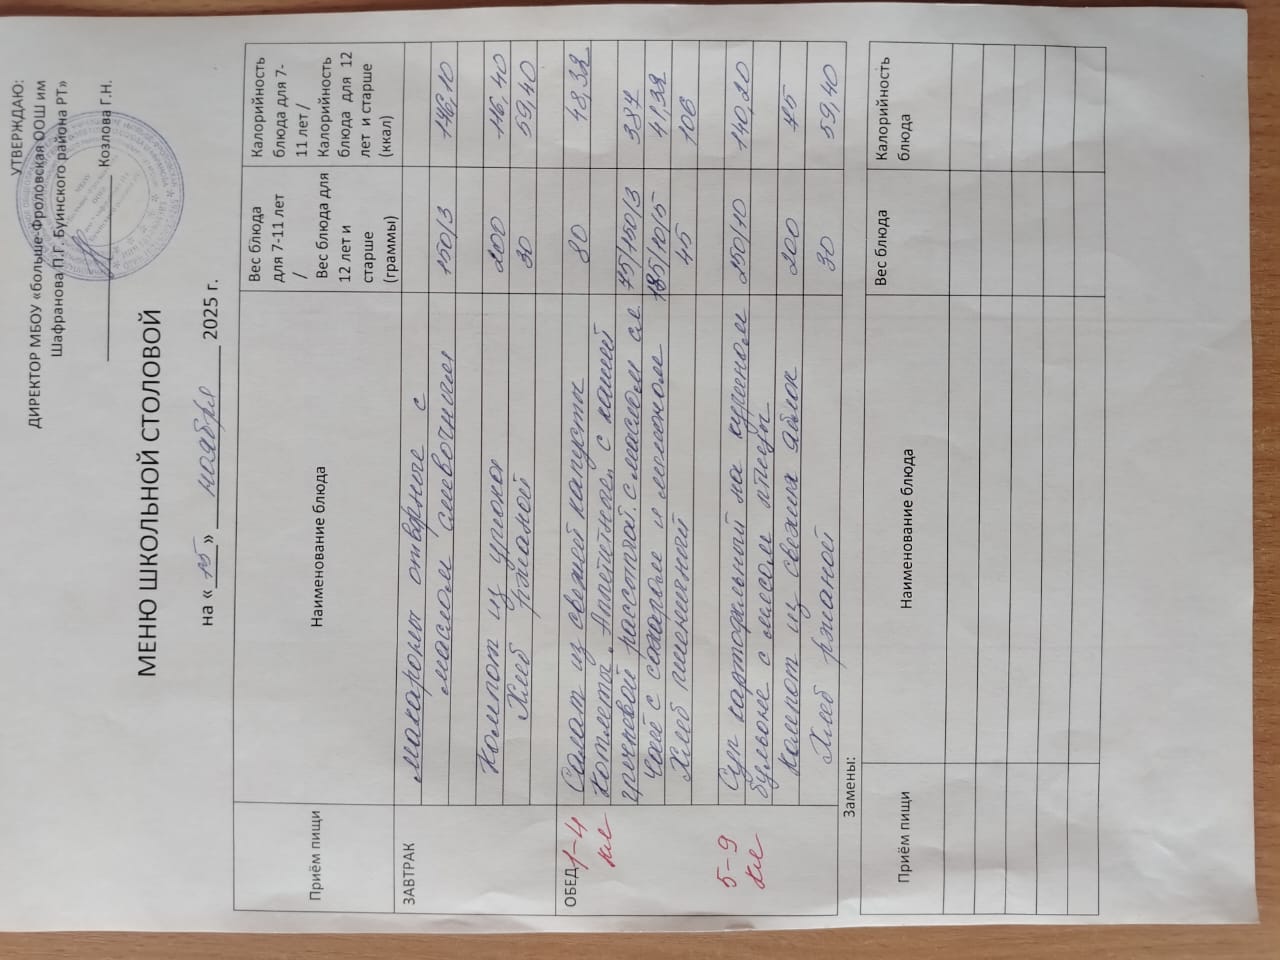 УТВЕРЖДАЮ:
ДИРЕКТОР МБОУ «больше-Фроловская ООШ им
Шафранова П.Г. Буинского района РТ»
Козлова Г.Н.
МЕНЮ ШКОЛЬНОЙ СТОЛОВОЙ
на « 15 » ноября 2025 г.
Приём пищи Наименование блюда Вес блюда для 7-11 лет / Вес блюда для 12 лет и старше (граммы) Калорийность блюда для 7-11 лет / Калорийность блюда для 12 лет и старше (ккал)
ЗАВТРАК макароны отварные с
маслом сливочным 150/3 196,10
Компот из 200 116,40
Хлеб ржаной 30 59,40
ОБЕД 1-4 кл Салат из свежей капусты 80 48,32
котлеты „Аппетитные" с кашей
гречневой рассыпчат. с маслом сл 75/150/3 387
Чай с сахаром и лимоном 185/10/5 41,32
Хлеб пшеничный 45 106
5-9 кл Суп картофельный на курином
бульоне с мясом птицы 250/10 140,20
Компот из свежих яблок 200 45
Хлеб ржаной 30 59,40
Замены:
Приём пищи Наименование блюда Вес блюда Калорийность блюда